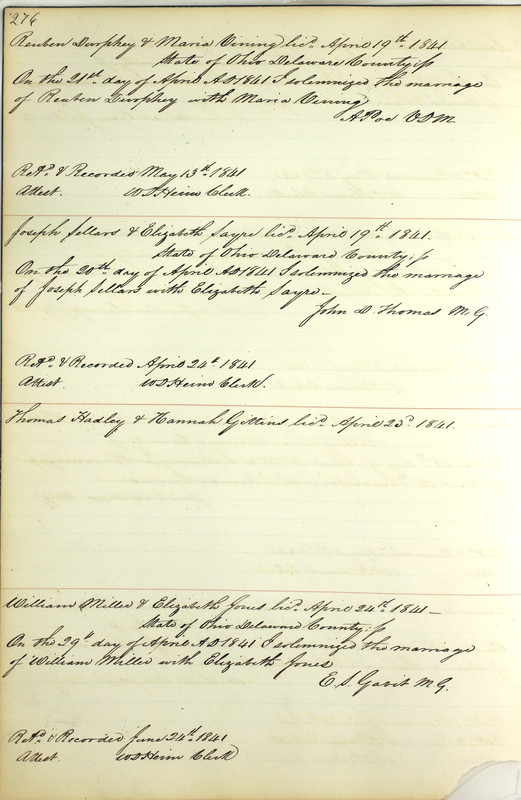 276
Reuben Durphey & Maria Vining licd. April 19th. 1841.
State of Ohio Delaware County; ss
On the 21st day of April AD. 1841 I solemnized the marriage
of Reuben Durphey with Maria Vining
A Poe V.D.M.
Retd. & Recorded May 13th. 1841
Attest. W D Heim Clerk.
Joseph Sellars & Elizabeth Sayre licd. April 19th. 1841.
State of Ohio Delaware County; ss
On the 20th day of April AD 1841 I solemnized the marriage
of Joseph Sellars with Elizabeth Sayre—
John D. Thomas M G.
Retd. & Recorded April 24th. 1841
Attest. W D Heim Clerk.
Thomas Hadley & Hannah Gittins licd. April 23d. 1841.
William Miller & Elizabeth Jones licd. April 24th. 1841—
State of Ohio Delaware County; ss
On the 29th day of April AD 1841 I solemnized the marriage
of William Miller with Elizabeth Jones
E. S. Gavit M G.
Retd. & Recorded June 24th. 1841
Attest. W D Heim Clerk